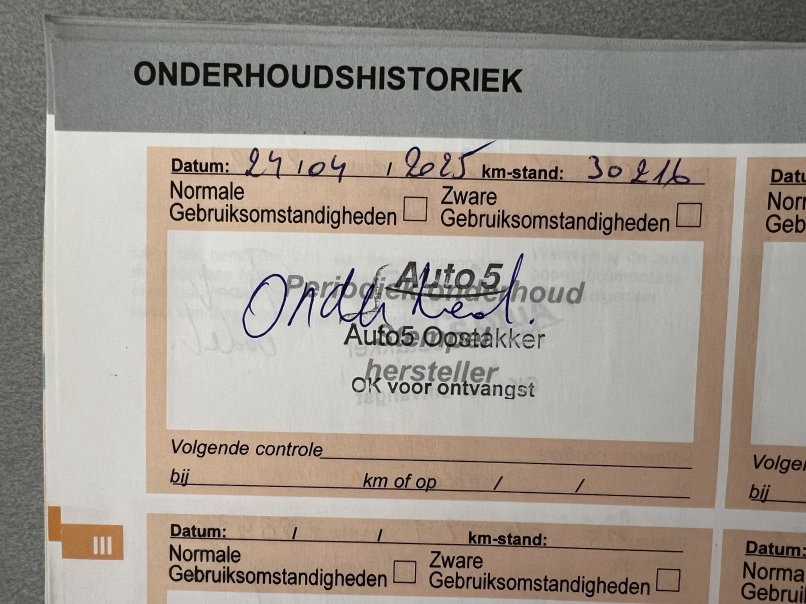 ONDERHOUDSHISTORIEK
Datum: 24 / 04 / 2025 km-stand: 30216
Normale Gebruiksomstandigheden
Zware Gebruiksomstandigheden
Periodiek onderhoud
Auto5
Onderhoud
Auto5 Oostakker
hersteller
ok voor ontvangst
Volgende controle
bij km of op / /
III
Datum: / / km-stand:
Normale Gebruiksomstandigheden
Zware Gebruiksomstandigheden
Datum:
bij